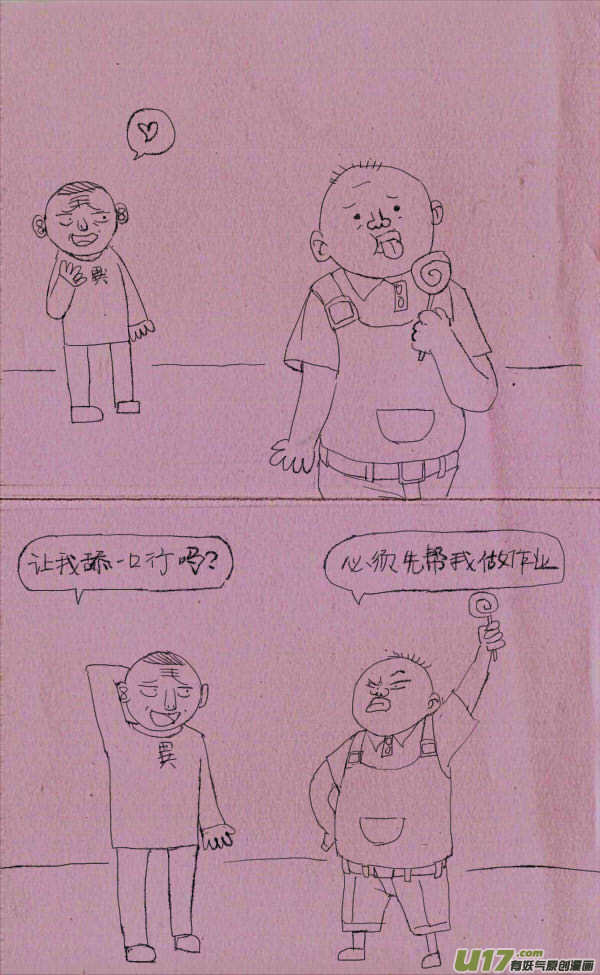 異
让我舔一口行吗?
必须先帮我做作业
異
U17.com
有妖气原创漫画